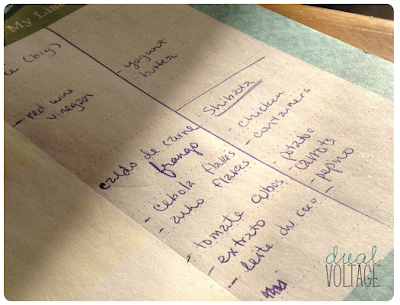 My List
(big)
- red wine
vinegar
- yogurt
butter
Shibata
- chicken
- containers
- potato
- carrots
- pepino
caldo de carne
frango
- cebola flakes
- alho flakes
- tomate cubos
- extrato
- leite de coco
dual
VOLTAGE